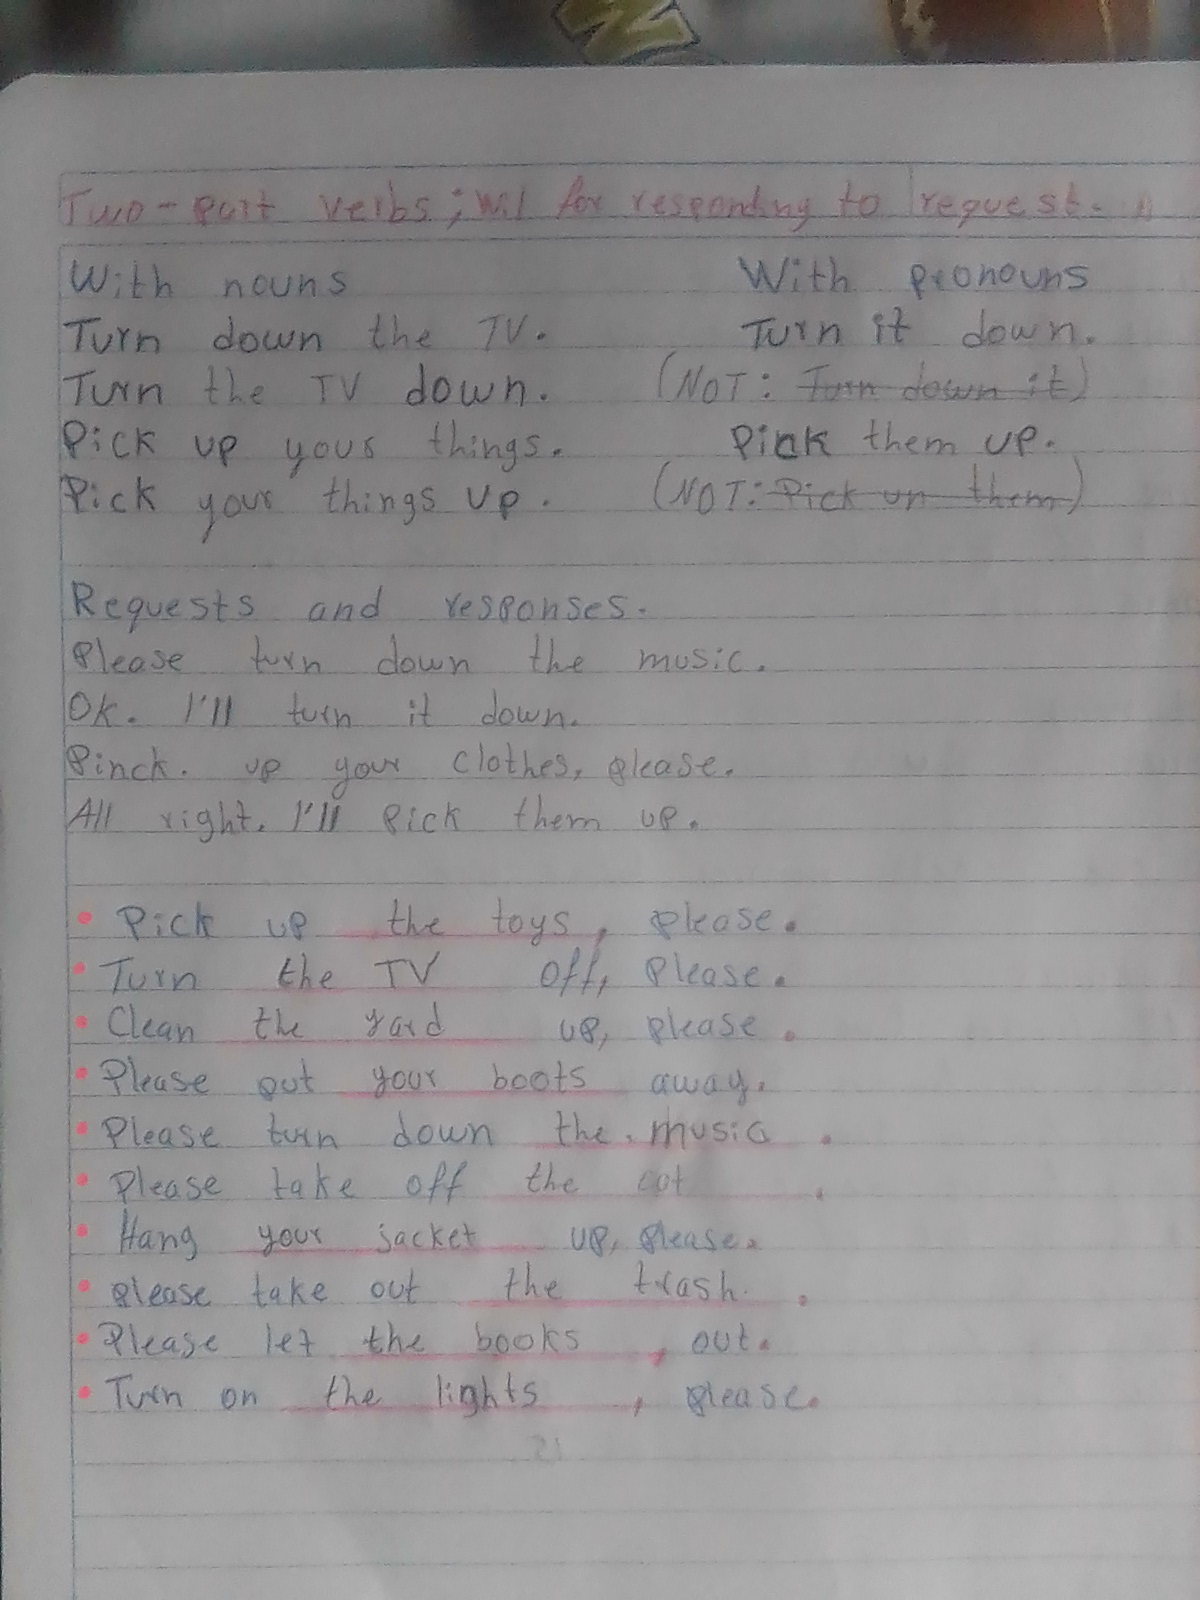 Two-part verbs; wil for responding to request.
With nouns With pronouns
Turn down the TV. Turn it down.
Turn the TV down. (NOT: Turn down it)
Pick up your things. Pink them up.
Pick your things up. (NOT: Pick up them)
Requests and responses.
Please turn down the music.
Ok. I'll turn it down.
Pinck. up your clothes, please.
All right. I'll pick them up.
• Pick up the toys, please.
• Turn the TV off, please.
• Clean the yard up, please.
• Please put your boots away.
• Please turn down the music.
• Please take off the cot.
• Hang your jacket up, please.
• please take out the trash.
• Please let the books, out.
• Turn on the lights, please.